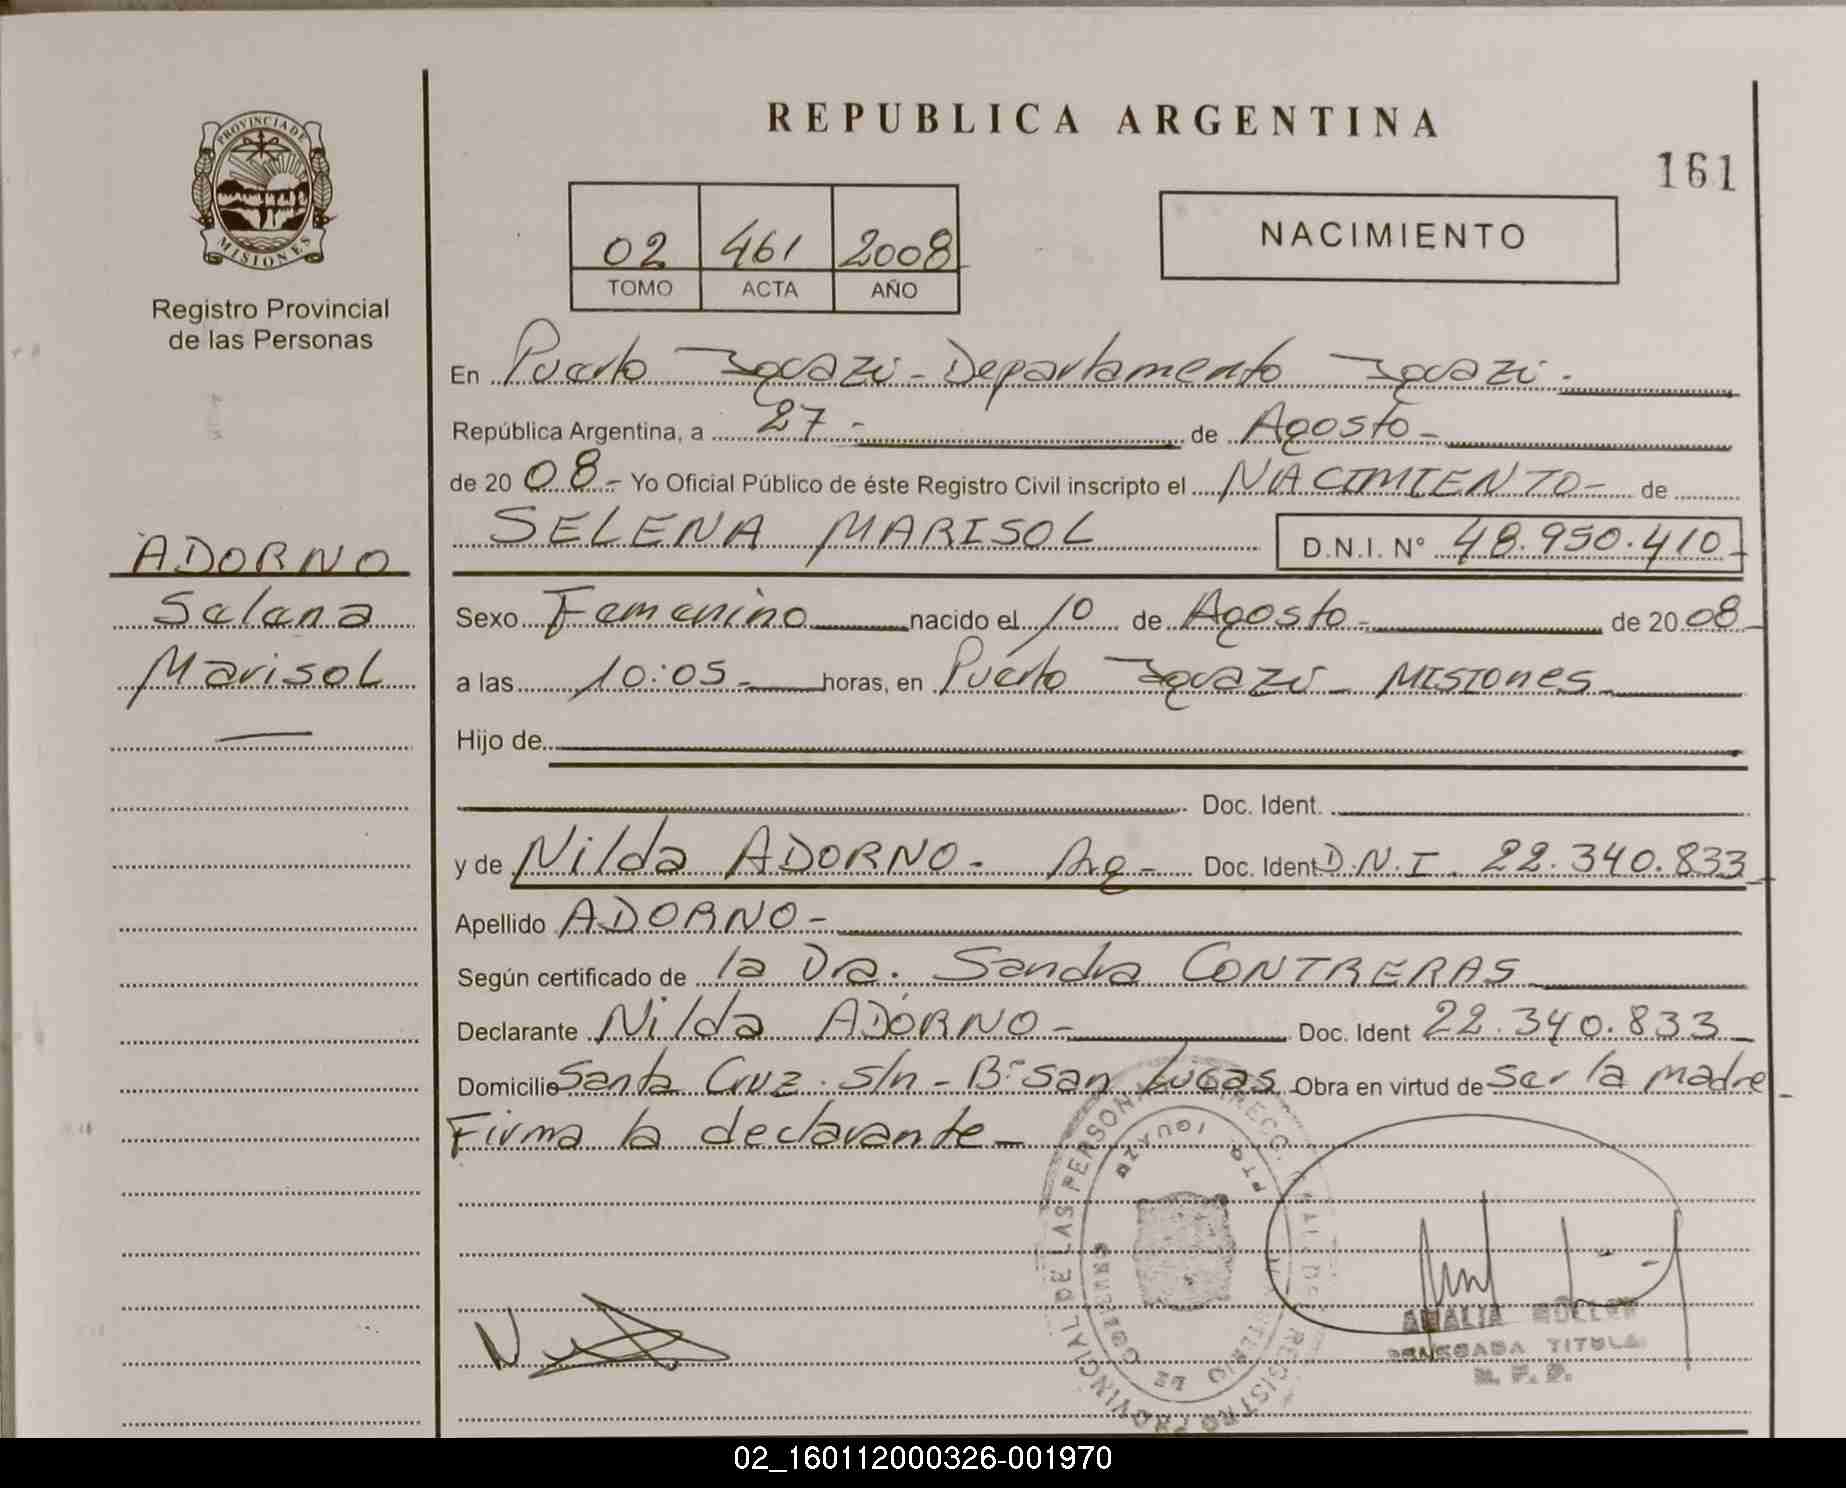 REPUBLICA ARGENTINA
161
PROVINCIA DE
MISIONES
Registro Provincial
de las Personas
02 461 2008
TOMO ACTA AÑO
NACIMIENTO
En Puerto Iguazú - Departamento Iguazú.
República Argentina, a 27 - de Agosto -
de 20 08 - Yo Oficial Público de éste Registro Civil inscripto el NACIMIENTO - de
SELENA MARISOL D.N.I. Nº 48.950.410
ADORNO
Selena
Marisol
Sexo Femenino nacido el 10 de Agosto - de 20 08
a las 10:05 - horas, en Puerto Iguazú - MISIONES
Hijo de
Doc. Ident.
y de Nilda ADORNO - Arg - Doc. Ident D.N.I. 22.340.833
Apellido ADORNO -
Según certificado de la Dra. Sandra CONTRERAS
Declarante Nilda ADORNO - Doc. Ident 22.340.833
Domicilio Santa Cruz s/n - Bº San Lucas Obra en virtud de ser la madre
Firma la declarante -
PROVINCIAL DE LAS PERSONAS
PTO. IGUAZU
REGISTRO
AMALIA
TITULAR
02_160112000326-001970